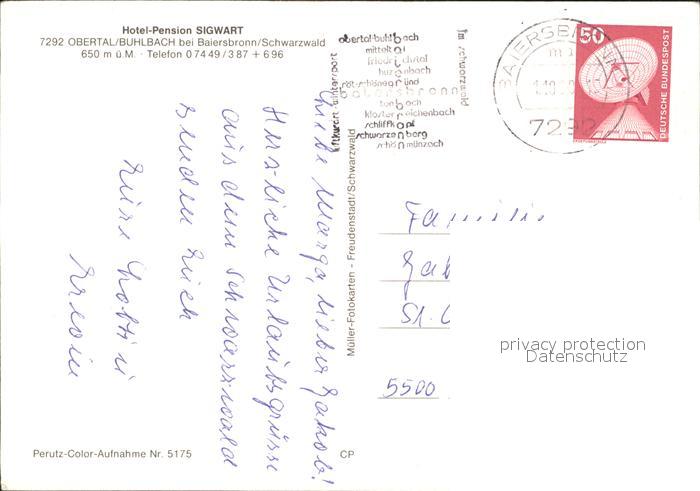 Hotel-Pension SIGWART
7292 OBERTAL/BUHLBACH bei Baiersbronn/Schwarzwald
650 m ü.M. · Telefon 0 74 49 / 3 87 + 6 96
Liebe Marga, lieber Jakob!
Herzliche Urlaubsgrüsse
aus dem Schwarzwald
senden Euch
Eure
Erwin
Müller-Fotokarten - Freudenstadt/Schwarzwald
Perutz-Color-Aufnahme Nr. 5175
CP
luftkurort wintersport
obertal-buhlbach
mitteltal
friedrichstal
huzenbach
röt-schönegründ
baiersbronn
tonbach
klosterreichenbach
schliffkopf
schwarzenberg
schönmünzach
im schwarzwald
BAIERSBRONN
7292
50
DEUTSCHE BUNDESPOST
Familie
St.
5500
privacy protection
Datenschutz